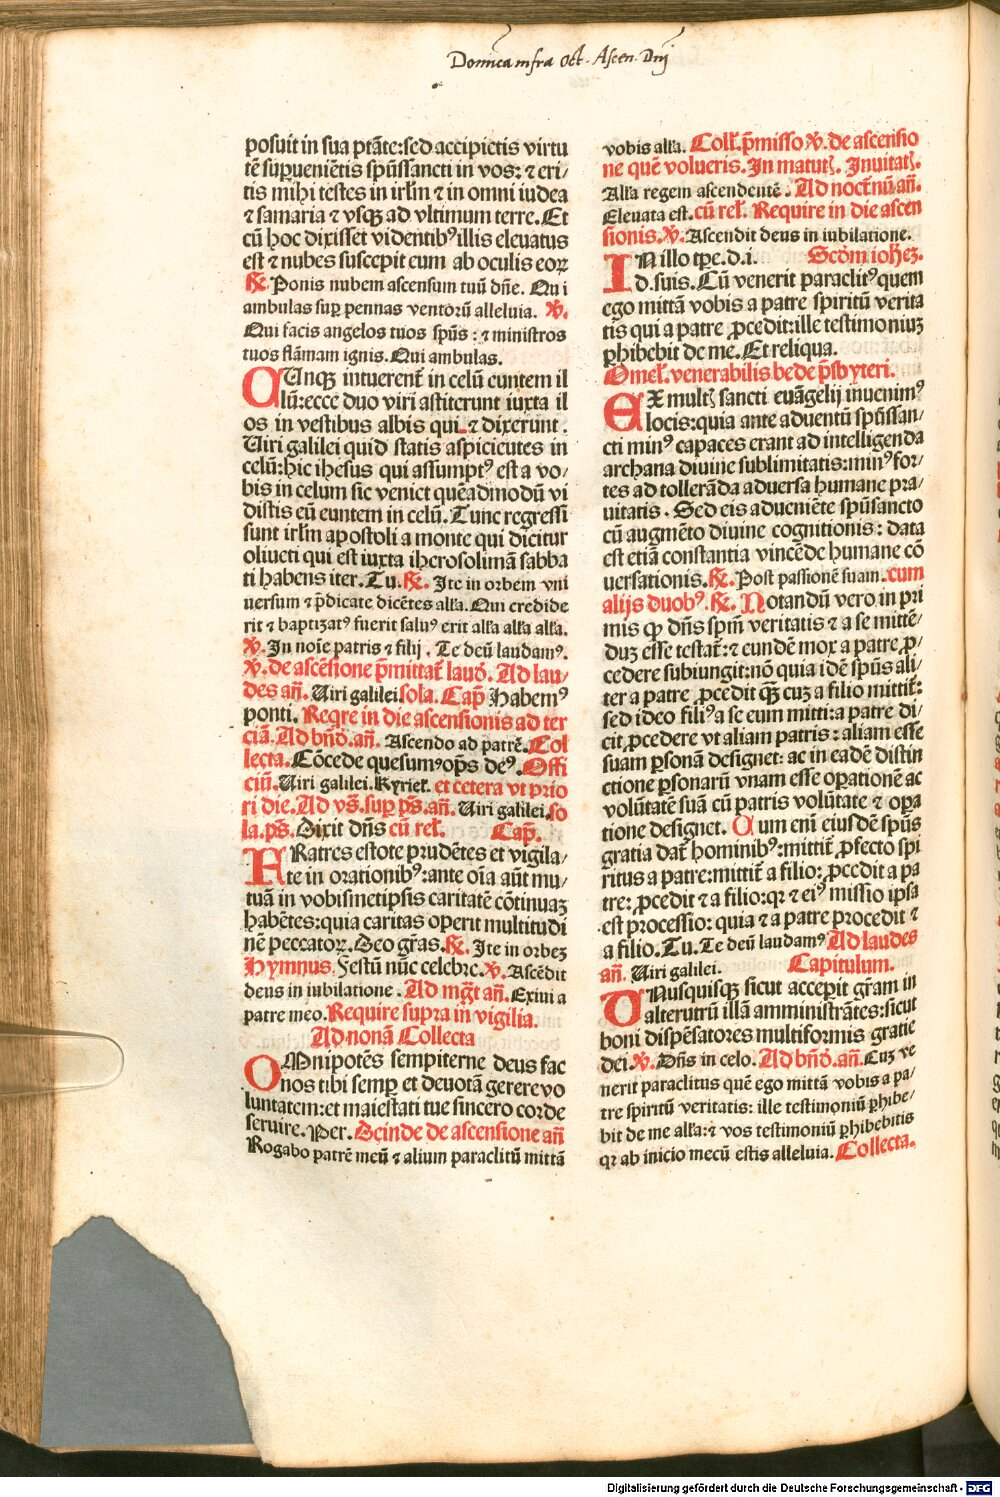 Domica infra oct. Ascen. Dnj
posuit in sua ptāte:sed accipietis virtu
tē sup̄uenientis spūssancti in vos: ⁊ eri/
tis mihi testes in irlm̄ ⁊ in omni iudea
⁊ samaria ⁊ vsqꝫ ad vltimum terre. Et
cū hoc dixisset videntibꝰ illis eleuatus
est ⁊ nubes suscepit eum ab oculis eoꝝ
℞. Ponis nubem ascensum tuū dn̄e. Qui
ambulas sup̄ pennas ventorū alleluia. ℣.
Qui facis angelos tuos spūs : ⁊ ministros
tuos flāmam ignis. Qui ambulas.
CUnqꝫ intuerent̄ in celū euntem il
lū:ecce duo viri astiterunt iuxta il
os in vestibus albis qui ⁊ dixerunt.
Uiri galilei quid statis aspicientes in
celū:hic ihesus qui assumptꝰ est a vo/
bis in celum sic veniet quēadmodū vi
distis eū euntem in celū. Tunc regressi
sunt irlm̄ apostoli a monte qui dicitur
oliueti qui est iuxta iherosolimā sabba
ti habens iter. Tu. ℞. Ite in orbem vni
uersum ⁊ p̄dicate dicētes alła. Qui credide
rit ⁊ baptizatꝰ fuerit saluꝰ erit alła alła alła.
℣. In noīe patris ⁊ filij . Te deū laudamꝰ.
℣. de ascēsione p̄mittat̄ laud. Ad lau
des an̄. Uiri galilei. sola. Cap̄ Habemꝰ
ponti. Reqre in die ascensionis ad ter
ciā. Ad bn̄d. an̄. Ascendo ad patrē. Col
lecta. Cōcede quesumꝰ op̄s deꝰ. Offi
ciū. Uiri galilei. Kyrieł. et cetera vt prio
ri die. Ad vs̄. sup̄ ps̄. an̄. Uiri galilei. so
la. ps̄. Dixit dn̄s cū reł. Cap̄.
FRatres estote prudētes et vigila/
te in orationibꝰ:ante oīa aūt mu/
tuā in vobismetipsis caritatē cōtinuaꝫ
habētes:quia caritas operit multitudi
nē peccatoꝝ. Deo gr̄as. ℞. Ite in orbeꝫ
Hymnus. Festū nūc celebre. ℣. Ascēdit
deus in iubilatione . Ad mg̃t an̄. Exiui a
patre meo. Require supra in vigilia.
Ad nonā Collecta
OMnipotēs sempiterne deus fac
nos tibi semp̄ et deuotā gerere vo
luntatem:et maiestati tue sincero corde
seruire. Per. Deinde de ascensione an̄
Rogabo patrē meū ⁊ alium paraclitū mittā
vobis alła. Coll. p̄misso ℣. de ascensio
ne quē volueris. In matut̄. Inuitat̄.
Alła regem ascendentē . Ad noct̄nū an̄.
Eleuata est. cū reł. Require in die ascen
sionis. ℣. Ascendit deus in iubilatione.
IN illo tp̄e. d. i. Scd̄m iohēꝫ.
d. suis. Cū venerit paraclitꝰ quem
ego mittā vobis a patre spiritū verita
tis qui a patre ꝓcedit:ille testimoniuꝫ
ꝑhibebit de me. Et reliqua.
Omeł. venerabilis bede p̄sbyteri.
EX mult̄ sancti euāgelij inuenimꝰ
locis:quia ante aduentū spūssan/
cti minꝰ capaces erant ad intelligenda
archana diuine sublimitatis:minꝰ for/
tes ad tollerāda aduersa humane pra/
uitatis . Sed eis adueniēte spūsancto
cū augmēto diuine cognitionis : data
est etiā constantia vincēde humane cō
uersationis. ℞. Post passionē suam. cum
alijs duobꝰ. ℞. Notandū vero in pri
mis ꝙ dn̄s spm̄ veritatis ⁊ a se mittē/
duꝫ esse testat̄: ⁊ eundē mox a patre ꝓ/
cedere subiungit:nō quia idē spūs ali/
ter a patre ꝓcedit qꝫ̄ cuꝫ a filio mittit̄:
sed ideo filiꝰ a se eum mitti:a patre di/
cit ꝓcedere vt aliam patris : aliam esse
suam ꝑsonā designet: ac in eadē distin
ctione ꝑsonarū vnam esse oꝑationē ac
volūtatē suā cū patris volūtate ⁊ oꝑa
tione designet. Cum enī eiusdē spūs
gratia dat̄ hominibꝰ:mittit̄ ꝓfecto spi
ritus a patre:mittit̄ a filio: ꝓcedit a pa
tre: ꝓcedit ⁊ a filio:qꝛ ⁊ eiꝰ missio ipsa
est processio: quia ⁊ a patre procedit ⁊
a filio. Tu. Te deū laudamꝰ Ad laudes
an̄. Uiri galilei. Capitulum.
UNusquisqꝫ sicut accepit gr̄am in
alterutrū illā amministrātes:sicut
boni dispēsatores multiformis gratie
dei. ℣. Dn̄s in celo. Ad bn̄d. an̄. Cuꝫ ve
nerit paraclitus quē ego mittā vobis a pa/
tre spiritū veritatis: ille testimoniū ꝑhibe/
bit de me alła:⁊ vos testimoniū ꝑhibebitis
qꝛ ab inicio mecū estis alleluia. Collecta.
Digitalisierung gefördert durch die Deutsche Forschungsgemeinschaft - DFG